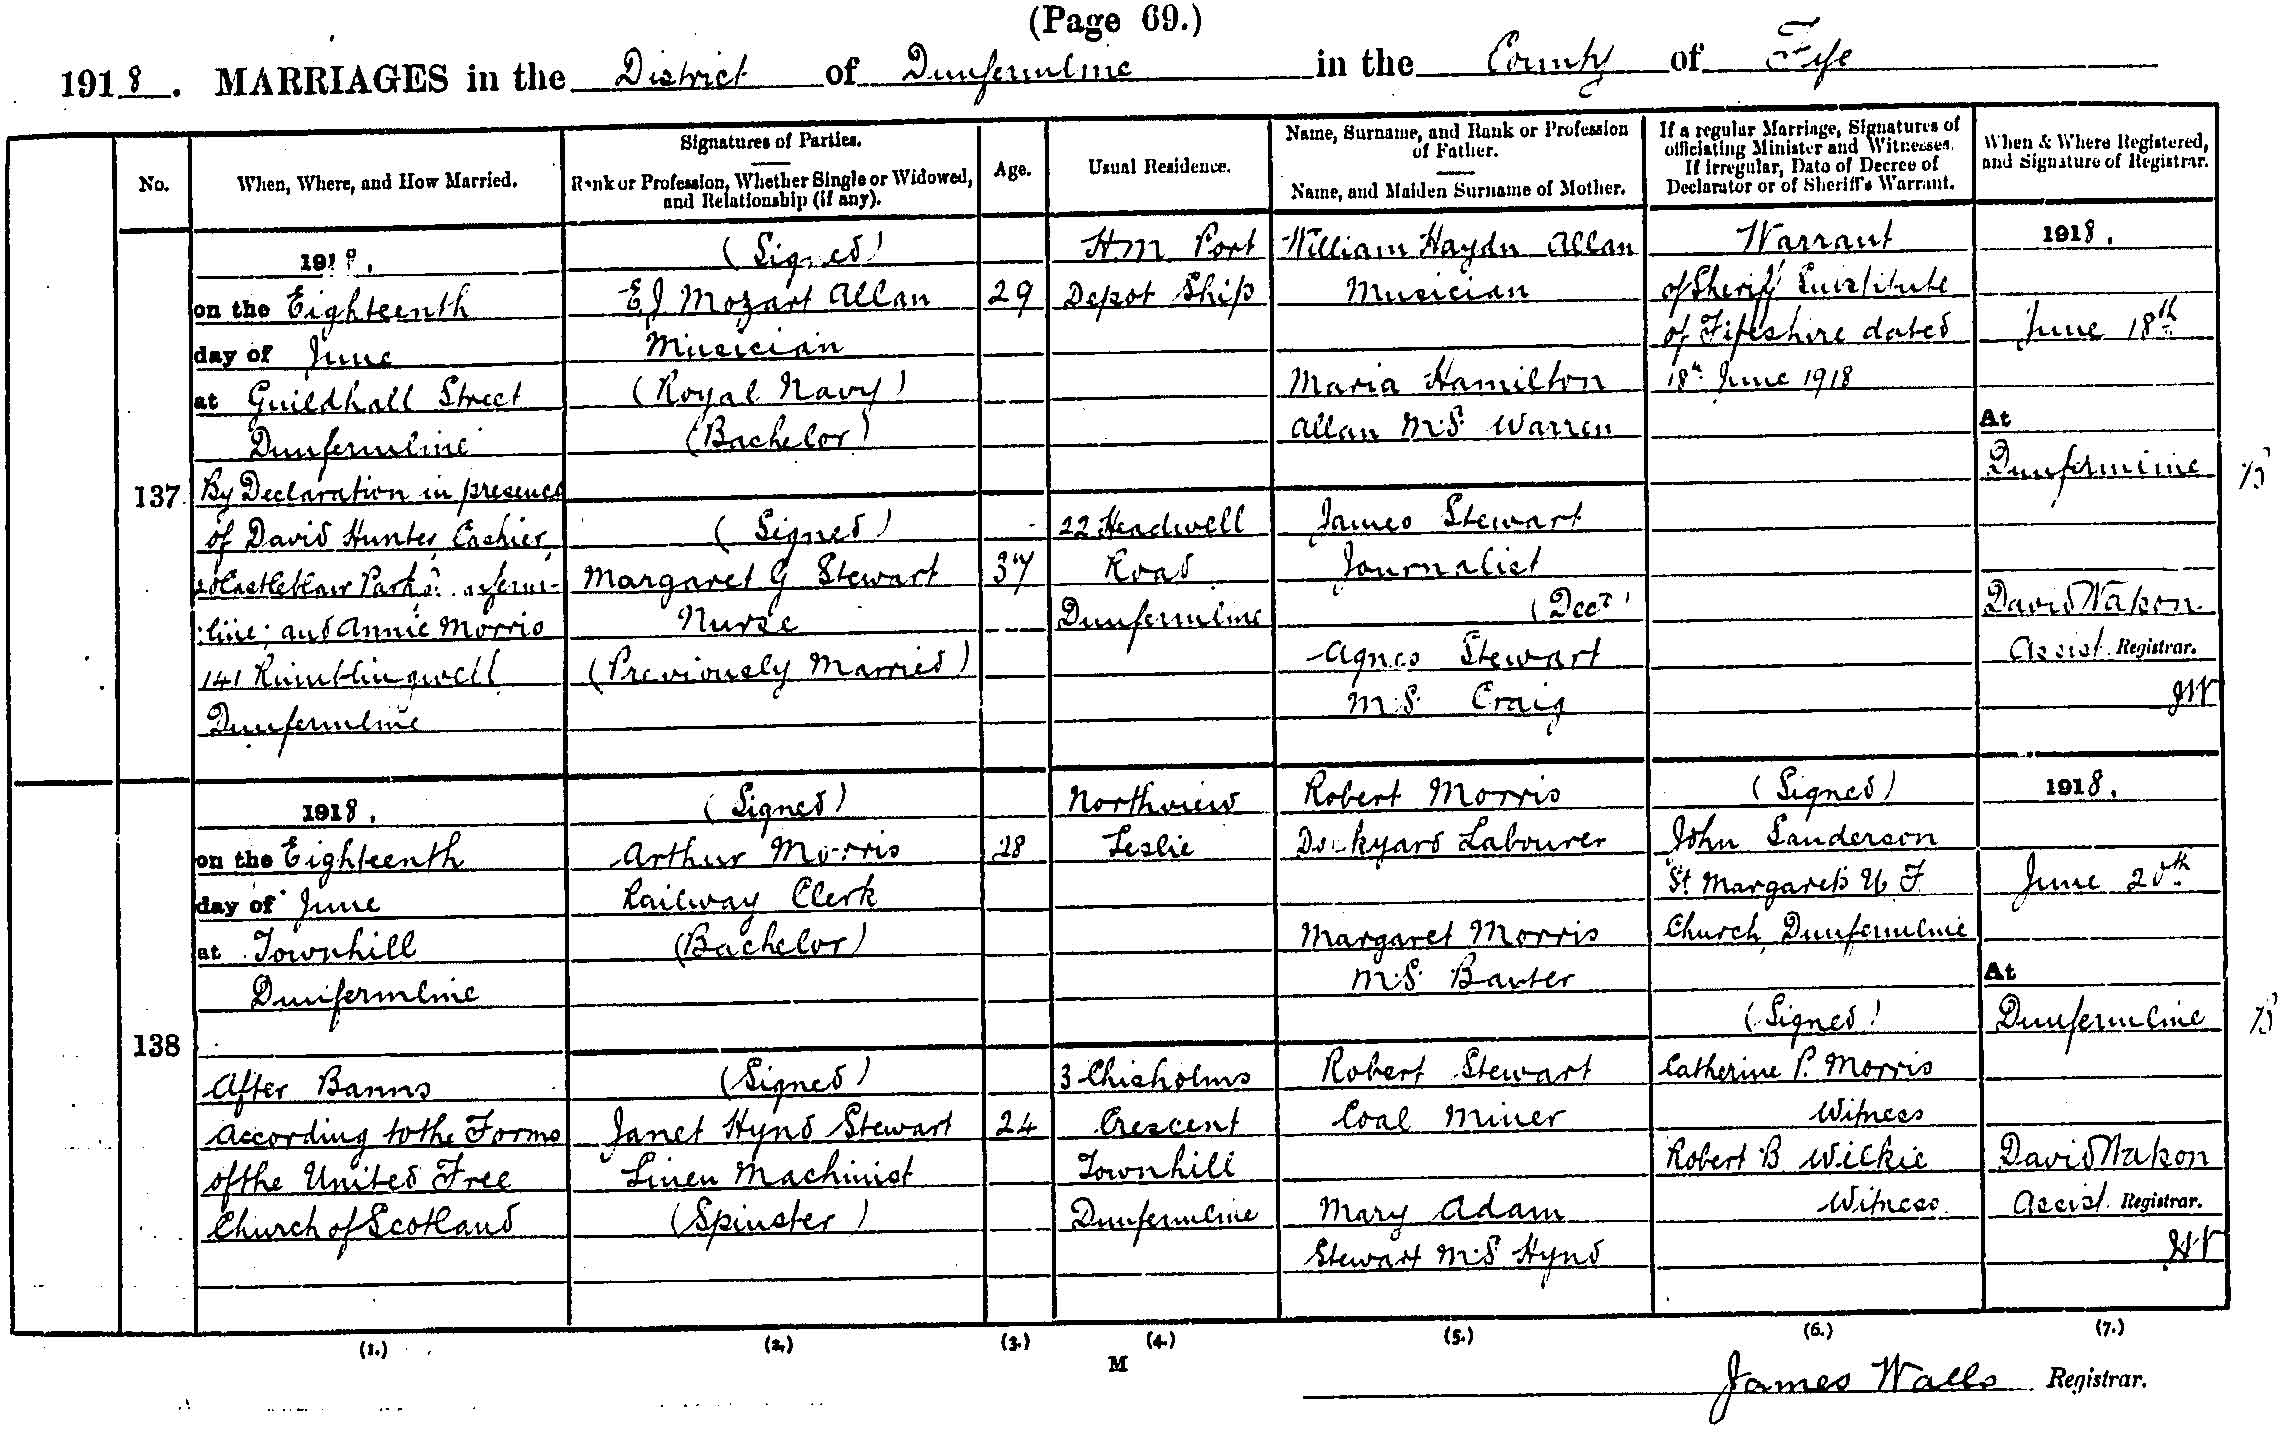 (Page 69.)
1918. MARRIAGES in the District of Dunfermline in the County of Fife
No.
When, Where, and How Married.
Signatures of Parties.
Rank or Profession, Whether Single or Widowed,
and Relationship (if any).
Age.
Usual Residence.
Name, Surname, and Rank or Profession
of Father.
Name, and Maiden Surname of Mother.
If a regular Marriage, Signatures of
officiating Minister and Witnesses.
If irregular, Date of Decree of
Declarator or of Sheriff's Warrant.
When & Where Registered,
and Signature of Registrar.
137
1918.
on the Eighteenth
day of June
at Guildhall Street
Dunfermline
By Declaration in presence
of David Hunter, Cashier,
Castleblair Park
:line; and Annie Morris
141 Rumblingwell
Dunfermline
(Signed)
E J Mozart Allan
Musician
(Royal Navy)
(Bachelor)
(Signed)
Margaret G Stewart
Nurse
(Previously Married)
29
37
HM Port
Depot Ship
22 Headwell
Road
Dunfermline
William Haydn Allan
Musician
Maria Hamilton
Allan M.S. Warren
James Stewart
Journalist
(Decd)
Agnes Stewart
M.S. Craig
Warrant
of Sheriff Substitute
of Fifeshire dated
18th June 1918
1918.
June 18th
At
Dunfermline
David Watson
Assist. Registrar.
JW
138
1918.
on the Eighteenth
day of June
at Townhill
Dunfermline
After Banns
According to the Forms
of the United Free
Church of Scotland
(Signed)
Arthur Morris
Railway Clerk
(Bachelor)
(Signed)
Janet Hynd Stewart
Linen Machinist
(Spinster)
28
24
Northview
Leslie
3 Chisholms
Crescent
Townhill
Dunfermline
Robert Morris
Dockyard Labourer
Margaret Morris
M.S. Baxter
Robert Stewart
Coal Miner
Mary Adam
Stewart M.S Hynd
(Signed)
John Sanderson
St. Margaret's U F
Church, Dunfermline
(Signed)
Catherine P. Morris
Witness
Robert B Wilkie
Witness
1918.
June 20th
At
Dunfermline
David Watson
Assist. Registrar.
JW
(1.) (2.) (3.) (4.) (5.) (6.) (7.)
M
James Walls Registrar.